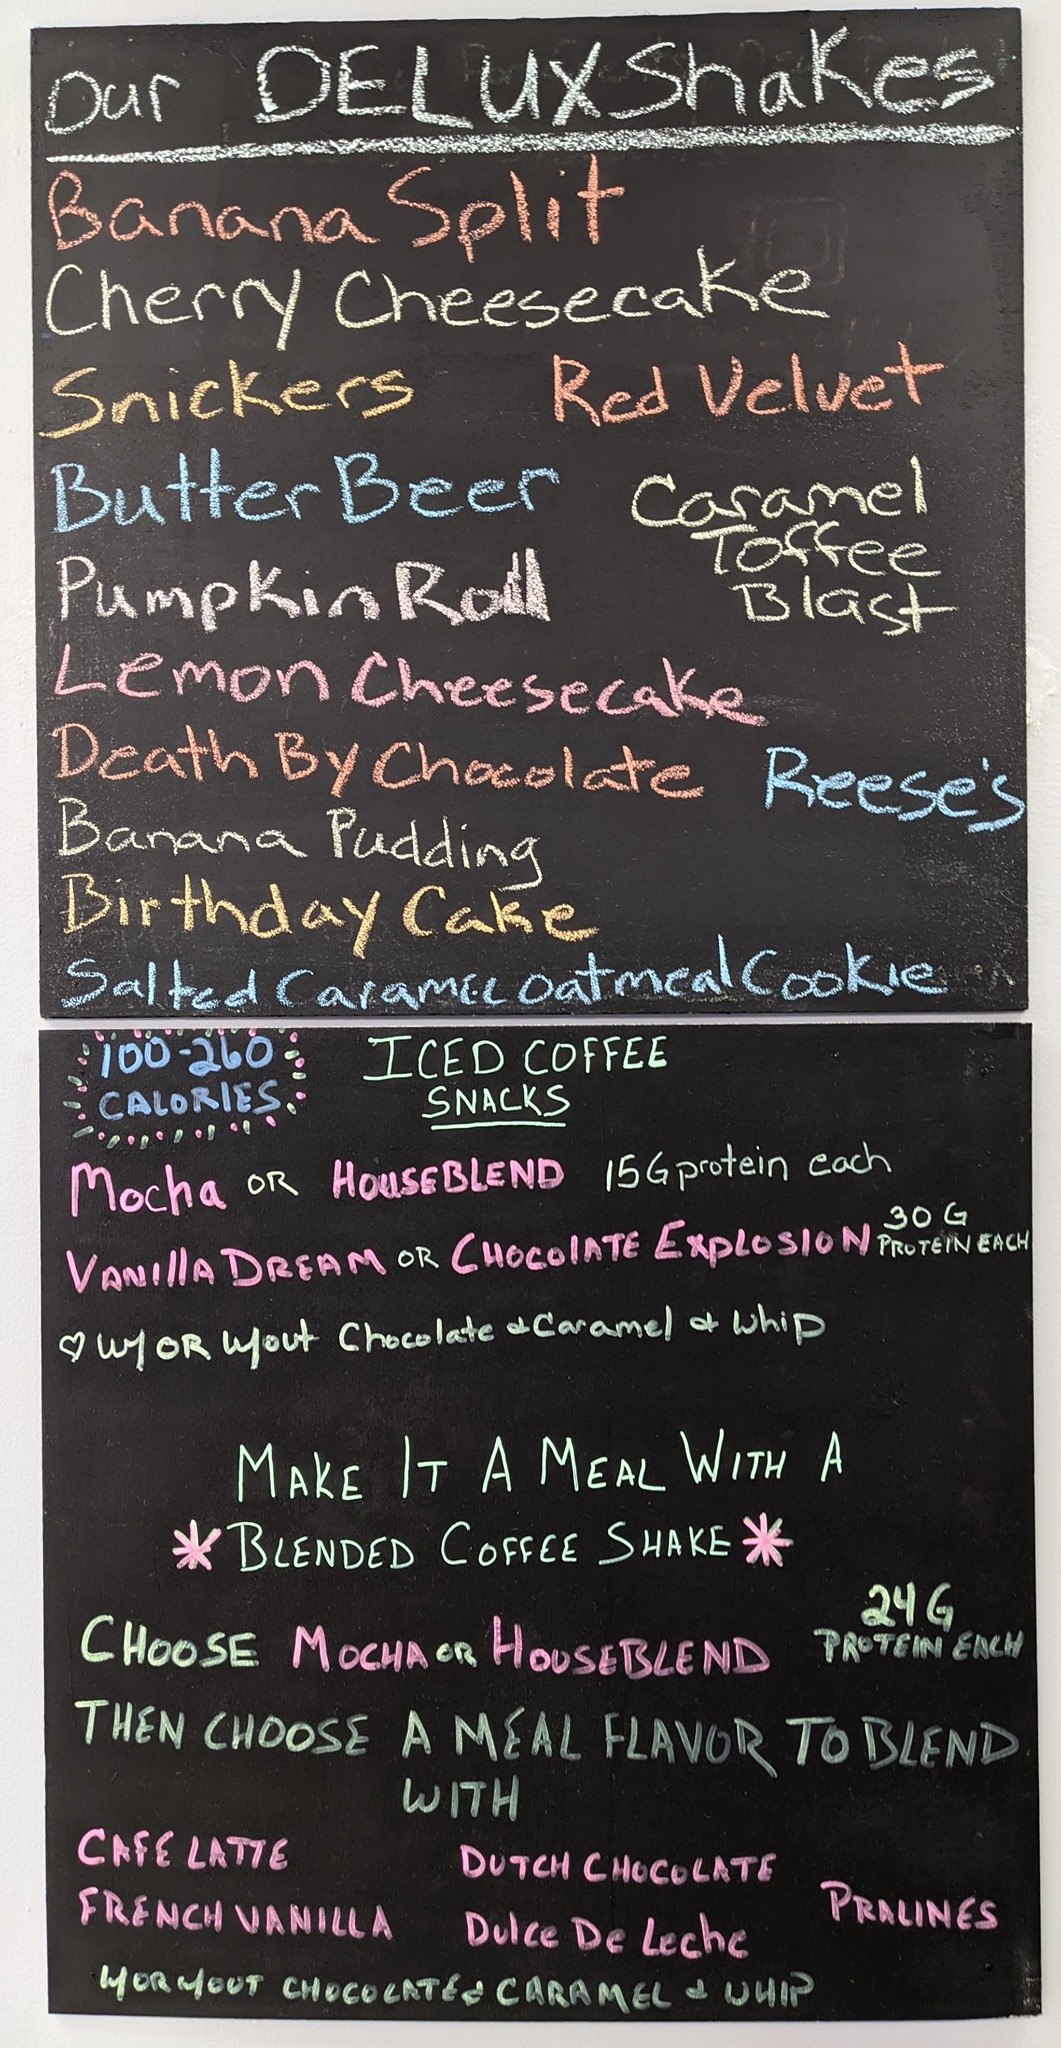 Our DELUX Shakes
Banana Split
Cherry Cheesecake
Snickers
Red Velvet
Butter Beer
Caramel
Toffee
Blast
Pumpkin Roll
Lemon Cheesecake
Death By Chocolate
Reese's
Banana Pudding
Birthday Cake
Salted Caramel Oatmeal Cookie
100-260
CALORIES
ICED COFFEE
SNACKS
Mocha OR HOUSEBLEND 15G protein each
VANIllA DREAM OR CHOCOlATE ExplOSION 30 G
PROTEIN EACH
♡ W/ OR W/out Chocolate & Caramel & Whip
MAKE IT A MEAL WITH A
* BLENDED COFFEE SHAKE *
CHOOSE MOCHA OR HOUSEBLEND 24 G
PROTEIN EACH
THEN CHOOSE A MEAL FLAVOR TO BLEND
WITH
CAFE LATTE
FRENCH VANILLA
DUTCH CHOCOLATE
Dulce De Leche
PRALINES
W/ OR W/OUT CHOCOLATE & CARAMEL & WHIP